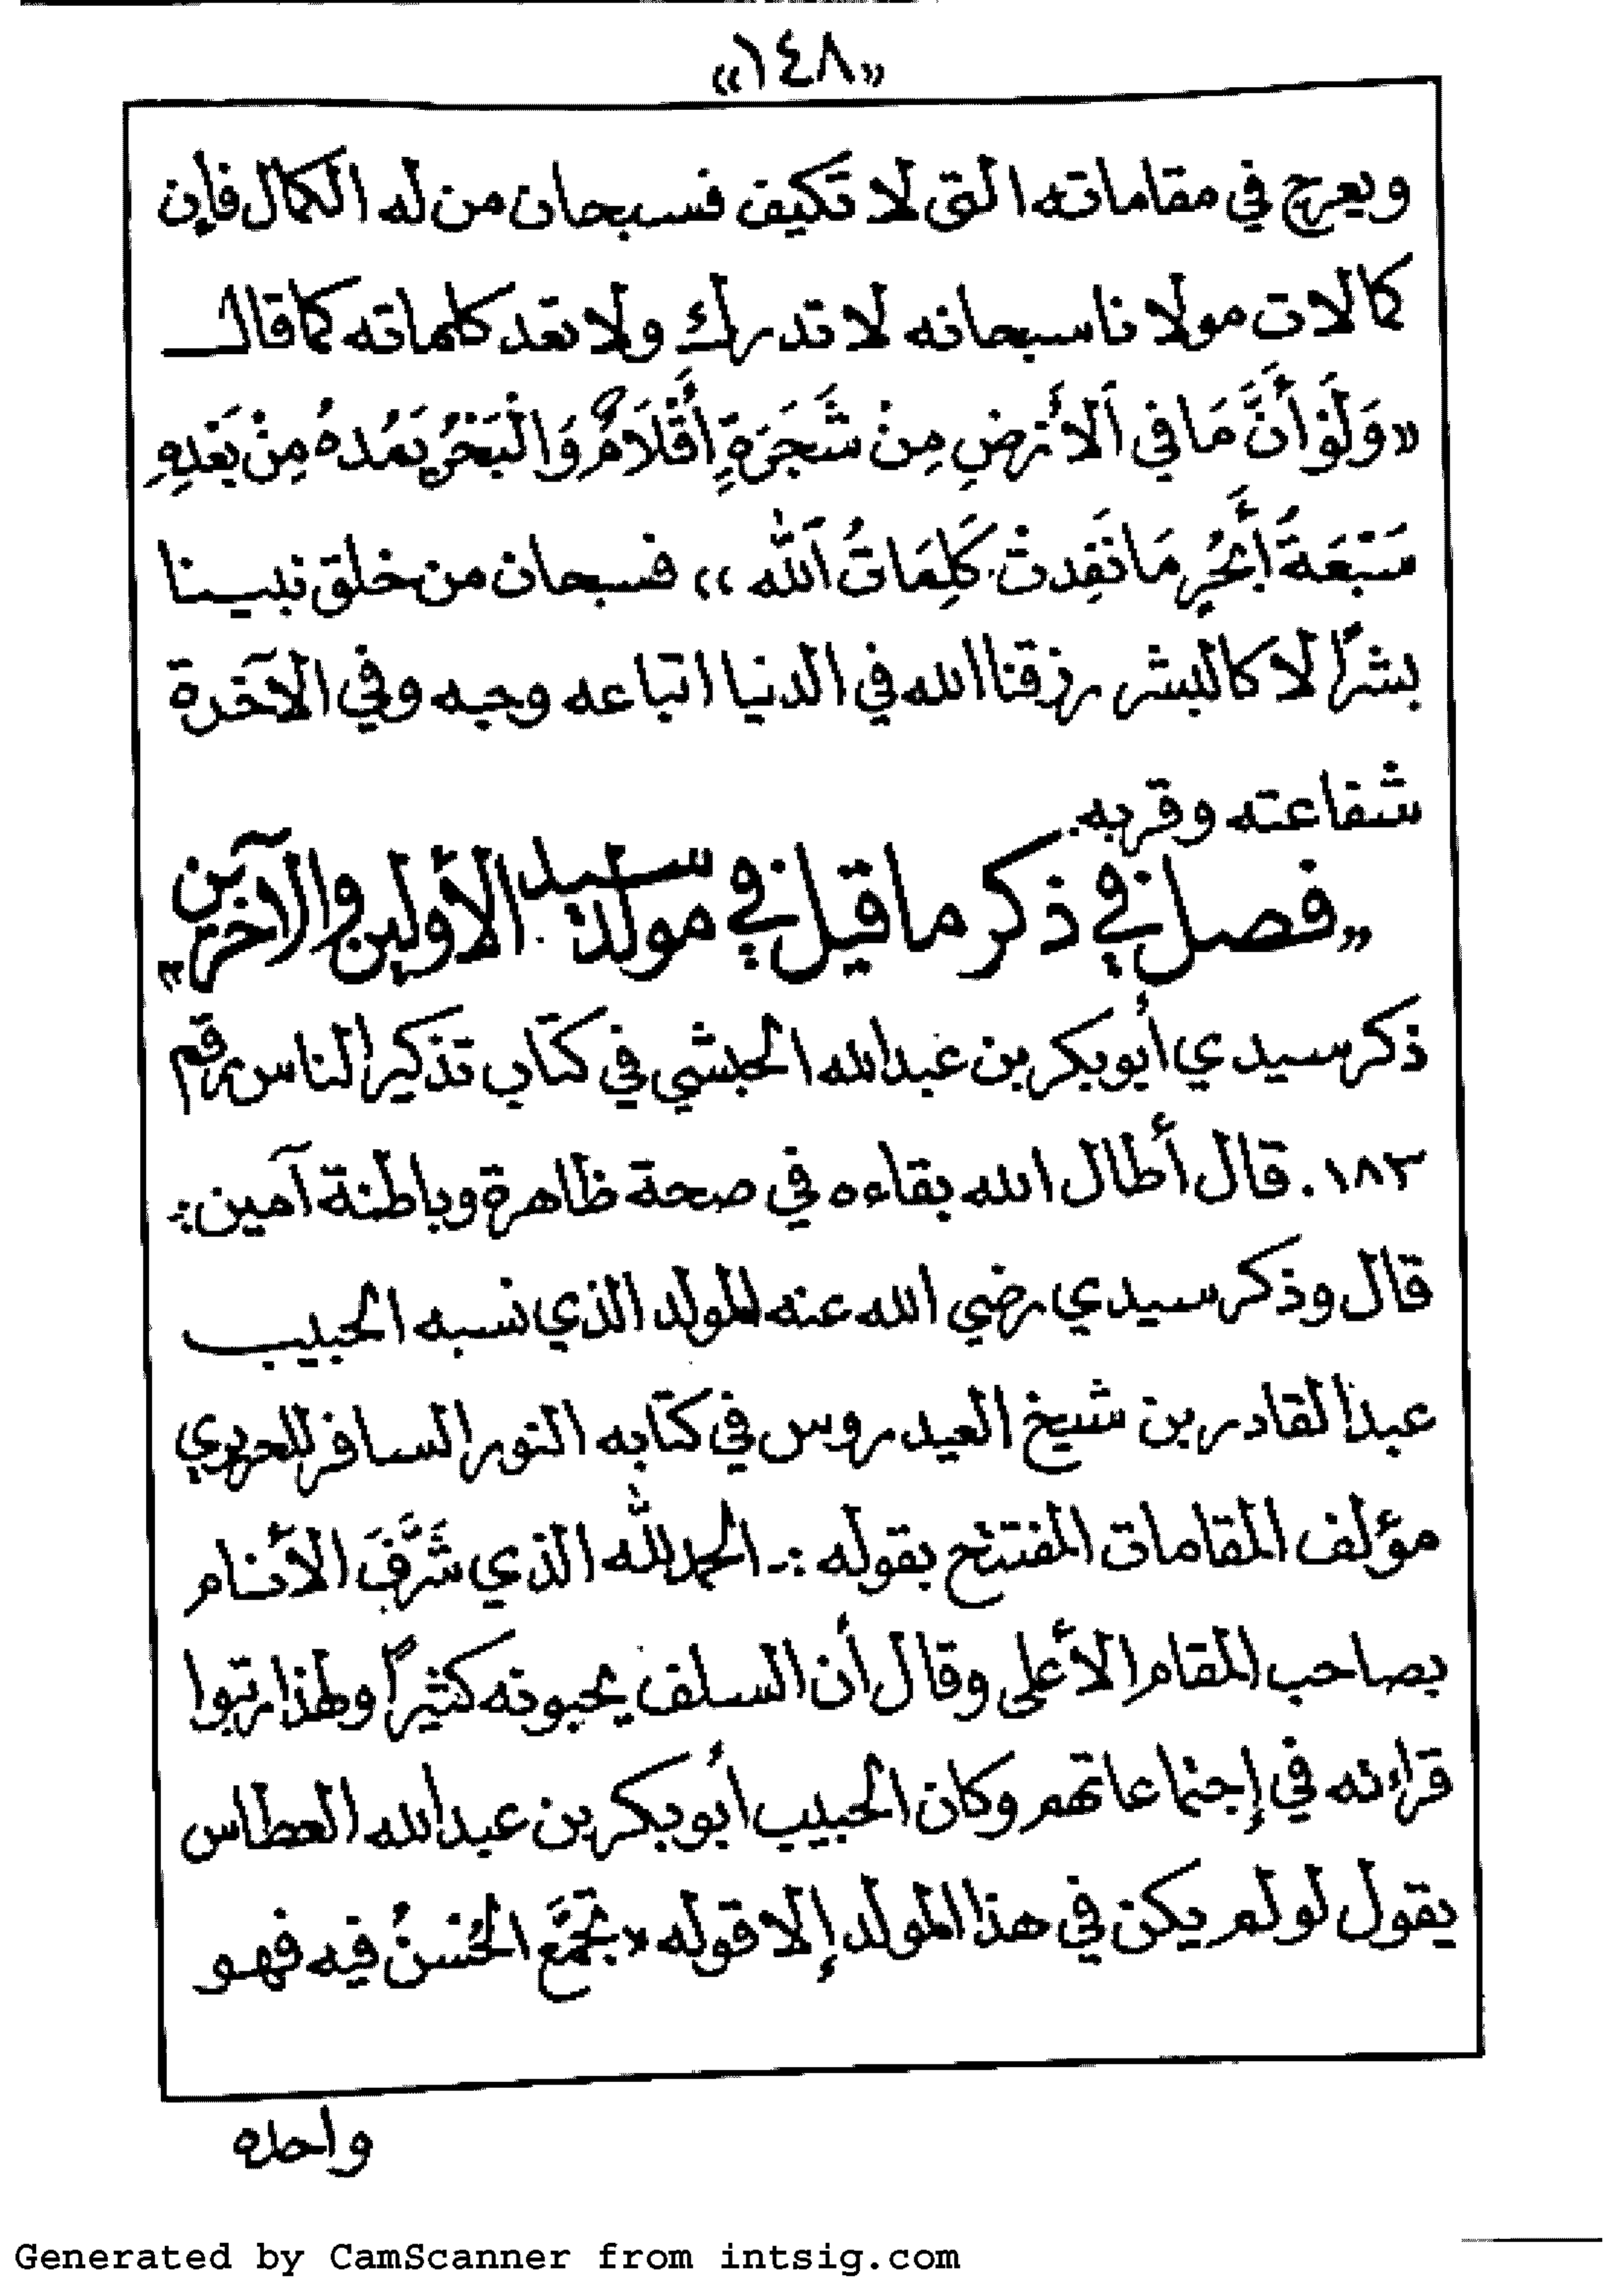 «١٤٨»
ويعرج في مقاماته التي لا تكيف فسبحان من له الكمال فإن
كمالات مولانا سبحانه لا تدرك ولا تعد كلماته كما قال
«وَلَوْ أَنَّ مَا في اَلأَرْضِ مِنْ شَجَرَةٍ أَقْلَامٌ وَالْبَحْرُ يَمُدهُ مِنْ بَعْدِهِ
سَبْعَةُ أَبْحُرٍ مَا نَفِدتْ كَلِمَاتُ اَللّه» فسبحان من خلق نبينا
بشرًا لا كالبشر رزقنا الله في الدنيا اتباعه وحبه وفي الآخرة
شفاعته وقربه.
«فصل في ذكر ما قيل في مولد سيد الأولين والآخرين»
ذكر سيدي أبو بكر بن عبدالله الحبشي في كتاب تذكير الناس رقم
١٨٣. قال أطال الله بقاءه في صحة ظاهرة وباطنة آمين :
قال وذكر سيدي رضي الله عنه المولد الذي نسبه الحبيب
عبد القادر بن شيخ العيدروس في كتابه النور السافر للحريري
مؤلف المقامات المفتتح بقوله :- الحمد للّه الذي شَرَّفَ الأنام
بصاحب المقام الأعلى وقال أن السلف يحبونه كثيرًا ولهذا رتبوا
قراءته في إجتماعاتهم وكان الحبيب أبو بكر بن عبدالله العطاس
يقول لو لم يكن في هذا المولد إلا قوله «تجمَّع الحُسْنُ فيه فهو
واحده
Generated by CamScanner from intsig.com